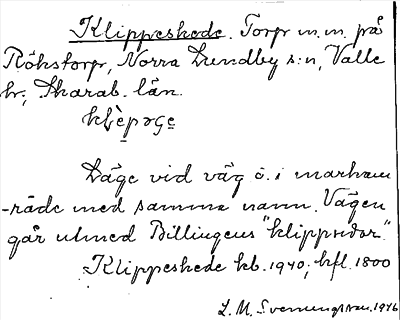 Klippeshede. Torp m.m. på
Rökstorp, Norra Lundby s:n, Valle
hr, Skarab. län.
Läge vid väg ö. i markom-
råde med samma namn. Vägen
går utmed Billingens "klippsidor."
Klippeshede kb. 1940; hfl. 1800
L. M. Svennungsson. 1946